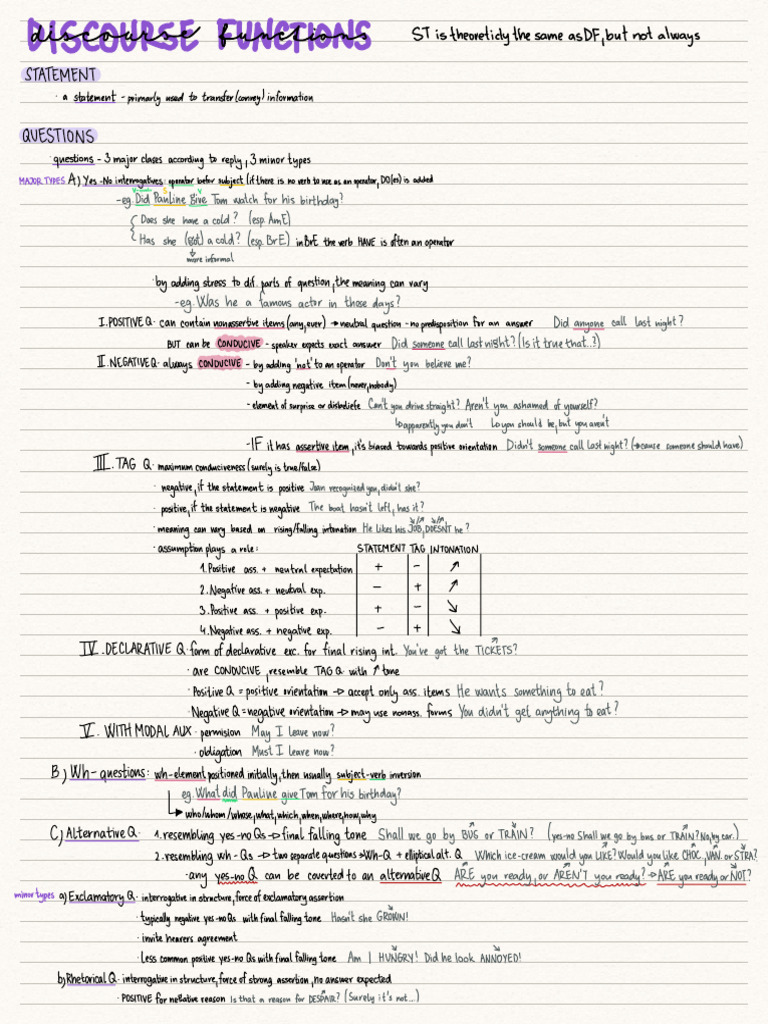 DISCOURSE FUNCTIONS
discourse functions
ST is theoreticly the same as DF, but not always
STATEMENT
· a statement - primarly used to transfer (convey) information
QUESTIONS
· questions - 3 major clases according to reply, 3 minor types
MAJOR TYPES A) Yes-No interrogatives: operator befor subject (if there is no verb to use as an operator, DO(es) is added
V S V
-eg. Did Pauline give Tom watch for his birthday?
Does she have a cold? (esp. AmE)
Has she (got) a cold? (esp. BrE) in BrE the verb HAVE is often an operator
more informal
· by adding stress to dif. parts of question, the meaning can vary
-eg. Was he a famous actor in those days?
I. POSITIVE Q. can contain nonassertive items (any, ever) → neutral question - no predisposition for an answer Did anyone call last night?
BUT can be CONDUCIVE - speaker expects exact answer Did someone call last night? (Is it true that..?)
II. NEGATIVE Q. always CONDUCIVE - by adding 'not' to an operator Don't you believe me?
- by adding negative item (never, nobody)
- element of surprise or disbeliefe Can't you drive straight? Aren't you ashamed of yourself?
↳ apparently you don't ↳ you should be, but you aren't
- IF it has assertive item, it's biased towards positive orientation Didn't someone call last night? (→ cause someone should have)
III. TAG Q. maximum conduciveness (surely is true/false)
· negative, if the statement is positive Joan recognized you, didn't she?
· positive, if the statement is negative The boat hasn't left, has it?
· meaning can vary based on rising/falling intonation He likes his JOB, DOESN'T he?
· assumption plays a role: STATEMENT TAG INTONATION
1. Positive ass. + neutral expectation + - ↗
2. Negative ass. + neutral exp. - + ↗
3. Positive ass. + positive exp. + - ↘
4. Negative ass. + negative exp. - + ↘
IV. DECLARATIVE Q. form of declarative exc. for final rising int. You've got the TICKETS?
· are CONDUCIVE, resemble TAG Q. with ↗ tone
· Positive Q = positive orientation → accept only ass. items He wants something to eat?
· Negative Q = negative orientation → may use nonass. forms You didn't get anything to eat?
V. WITH MODAL AUX · permision May I leave now?
· obligation Must I leave now?
B) Wh-questions: wh-element positioned initially, then usually subject-verb inversion
eg. What did Pauline give Tom for his birthday?
→ who/whom/whose, what, which, when, where, how, why
C) Alternative Q. 1. resembling yes-no Qs → final falling tone Shall we go by BUS or TRAIN? (yes-no Shall we go by bus or TRAIN? No, by car.)
2. resembling wh-Qs → two separate questions → Wh-Q + elliptical alt. Q Which ice-cream would you LIKE? Would you like CHOC., VAN. or STRA?
· any yes-no Q can be coverted to an alternative Q ARE you ready, or AREN'T you ready? → ARE you ready or NOT?
minor types a) Exclamatory Q. · interrogative in structure, force of exclamatory assertion
· typically negative yes-no Qs with final falling tone Hasn't she GROWN!
· invite hearers agreement
· Less common positive yes-no Qs with final falling tone Am I HUNGRY! Did he look ANNOYED!
b) Rhetorical Q. · interrogative in structure, force of strong assertion, no answer expected
· POSITIVE for negative reason Is that a reason for DESPAIR? (Surely it's not...)